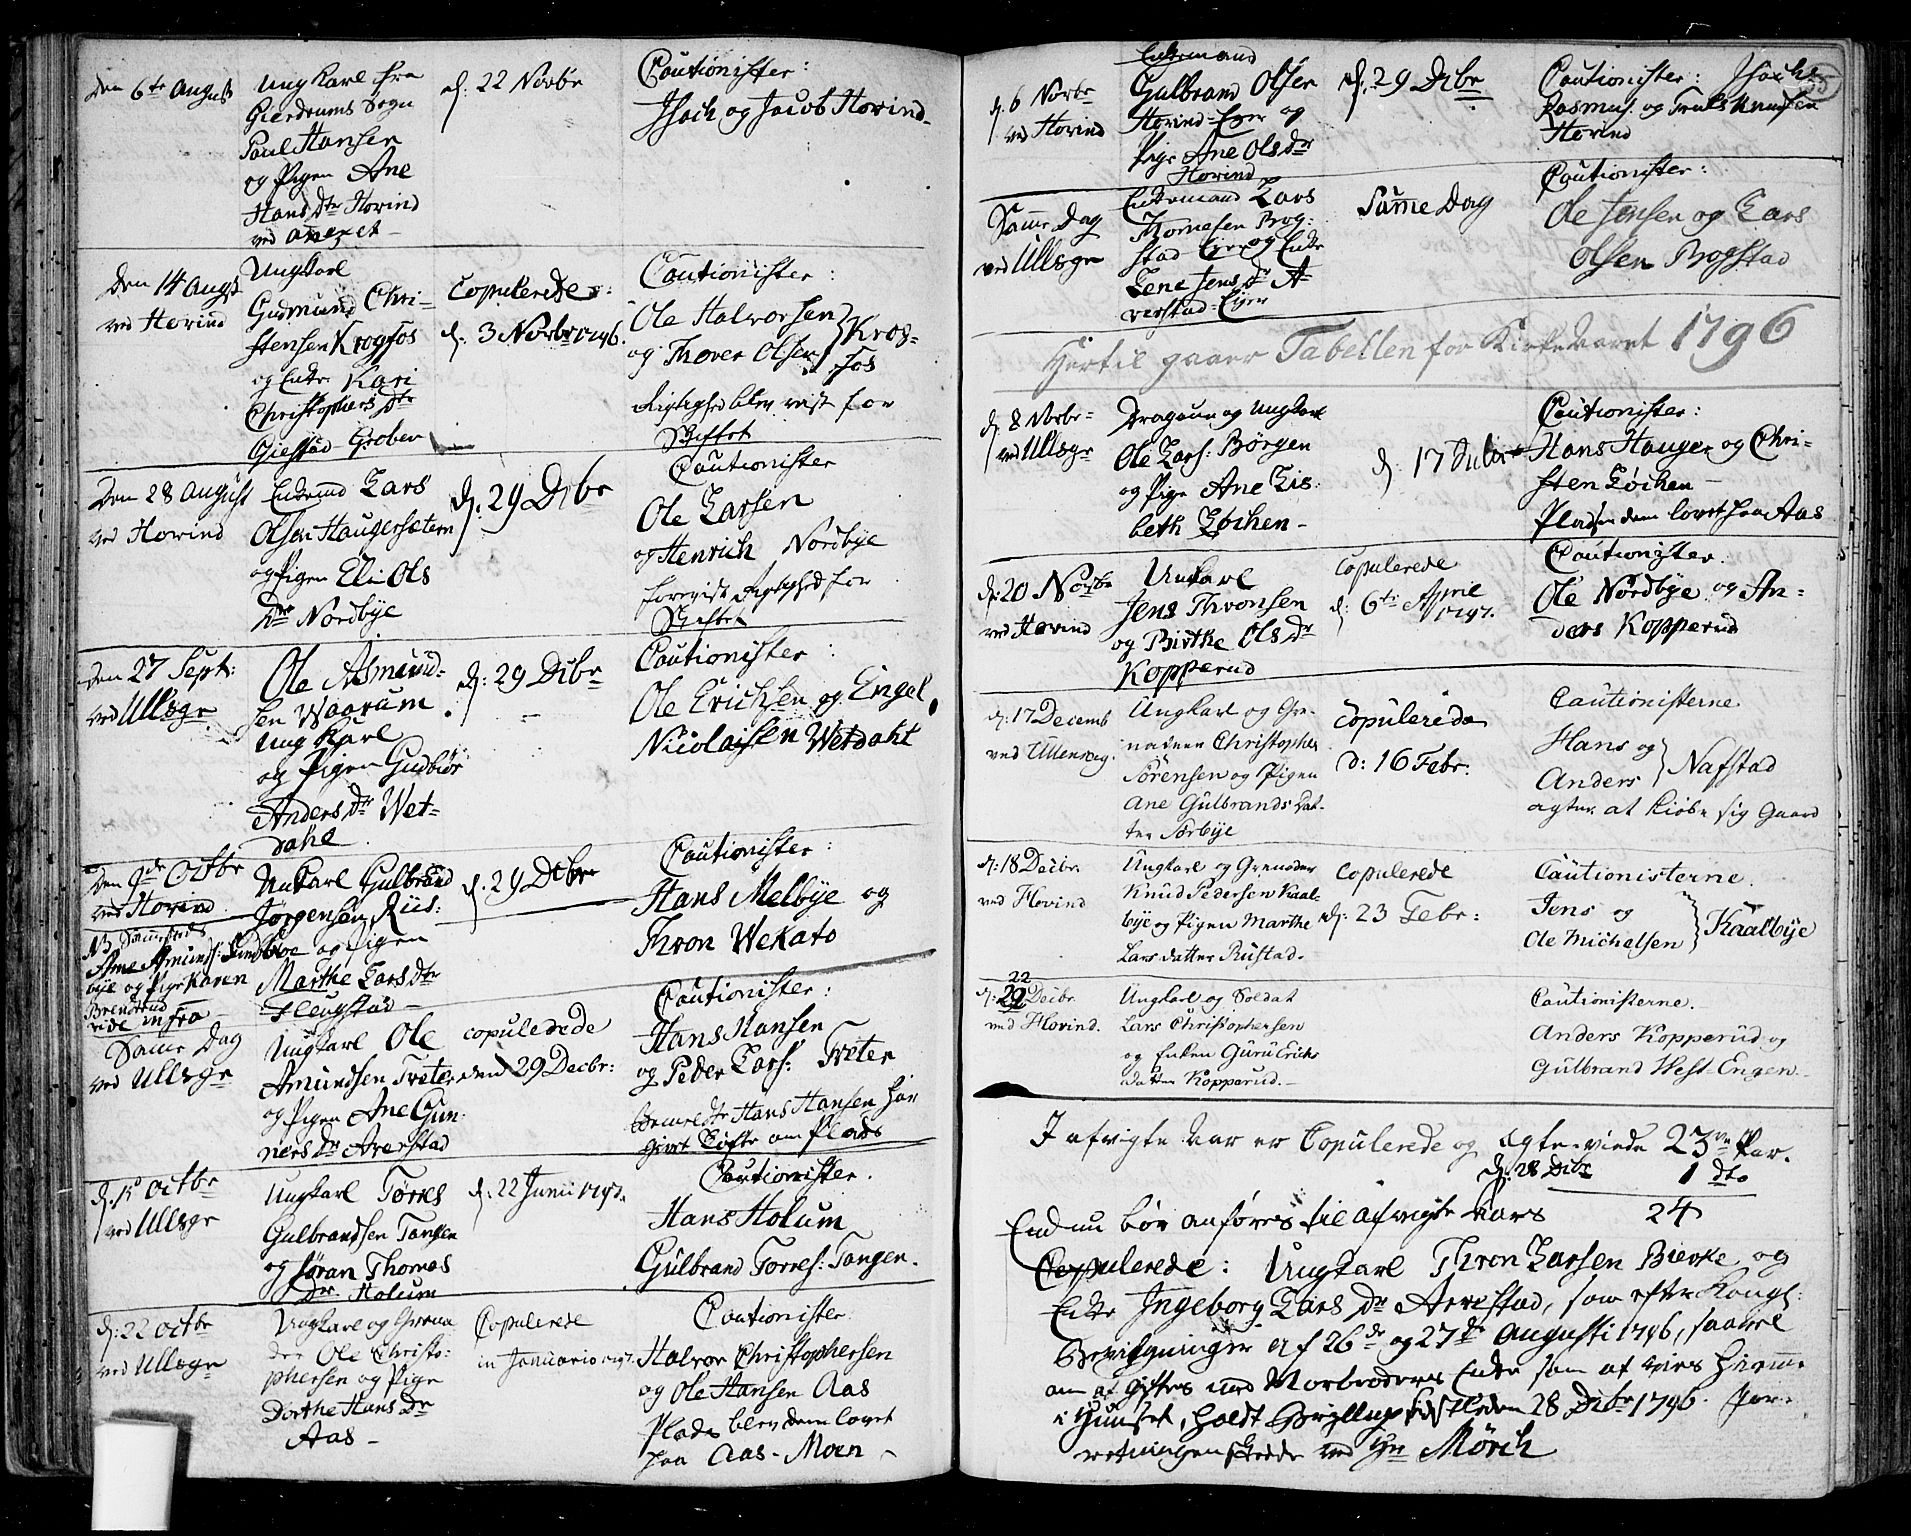 Den 6te August
Ung Karl fra
Gierdrums Sogn
Paul Hansen
og Pigen Ane
Hans Dtr Hovind
ved anexet
d. 22 Novbr
Cautionister:
Isach og Jacob Hovind
Den 14 Augst
ved Hovind
Ungkarl
Gudmund Chri-
stensen Krogfos
og Enke Kari
Christophers Dtr
Giestad Groben
Copulerede
d. 3 Novbr 1796.
Cautionister:
Ole Halvorsen
og Thover Olsen } Krog-
fos
Rigtighed blev viist for
Skiftet
Den 28 August
ved Hovind
Enkemd Lars
Olsen Haugersætern
og Pigen Eli Ols
Dtr Nordbye
d. 29 Dcbr
Cautionister
Ole Larsen
og Henrich Nordbye
foreviist Rigtighed for
Skiftet
Den 27 Sept:
ved Ullsgr
Ole Asmund-
sen Waarum
Ung Karl
og Pigen Gudbiør
Anders Dtr Wet-
dahl
d: 29 Dcbr
Cautionister:
Ole Erichsen og Engel
Nicolaisen Wetdahl
Den 9de Octbr
ved Hovind
Unkarl Gulbrand
Jørgensen Riis-
og Pigen
Marthe Lars Dtr
Fleugstad
d. 29 Dcbr
Cautionister:
Hans Melbye og
Thron Wekato
NB
Arne Amunds: Sund
bye og Pige Karen
Brendrud
vide infra
Same Dag
ved Ullsgr
Ungkarl Ole
Amundsen Tveter
og Pigen Ane Gun
ners Dtr Arerstad
copulerede
den 29 Decbr:
Cautionister:
Hans Hansen
og Peder Lars: Tveter
bemeldte Hans Hansen har
givet Løfte om Plads
d. 15 Octbr
ved Ullsgr
Ungkarl Torres
Gulbrandsen Tangen
og Søran Thomas
Dr Holum
d. 22 Junii 1797.
Cautionister.
Hans Holum
Gulbrand Torres: Tangen.
d. 22 Octbr
ved Ullsgr
Ungkarl og Grena
der Ole Christo:
phersen og Pige
Dorthe Hans Dr
Aas
Copulerede
in Januario 1797.
Cautionister
Halvor Christophersen
og Ole Hansen Aas
Plads blev dem lovet
paa Aas-Moen
35
d. 6 Novbr
ved Hovind
Enkemand
Gulbrand Olsen
Hovind-Eier og
Pige Ane Olsdtr
Hovind
d. 29 Dcbr
Cautionister: Isach
Rasmus. og Truls Knudsen
Hovind
Same Dag
ved Ullsgr
Enkemand Lars
Thomesen Bog:
stad Eier og Enke
Lene Jens Dr A-
rerstad-Eier
Same Dag
Cautionister:
Ole Jensen og Lars
Olsen Bogstad
Hertil gaaer Tabellen for Kirkeaaret 1796
d. 8 Novbr
ved Ullsgr
Dragoun og Ungkarl
Ole Lars: Børgen
og Pige Ane Lis
beth Løchen
d. 17
Cautionister:
Hans Hauger og Chri-
sten Løchen
Pladsen dem lovet paa Aas
d. 20 Novbr
ved Hovind
Unkarl
Jens Thronsen
og Birthe Ols Dr
Kopperud
copulerede
d: 6te
1797.
Cautionister.
Ole Nordbye og An-
ders Kopperud
d. 17 Decemb
ved Ullensag.
Ungkarl og Gre-
nadeer Christopher
Sørensen og Pigen
Ane Gulbrands Dat-
ter Sørbye
Copulerede
D: 16 Febr:
Cautionisterne
Hans og
Anders } Nafstad
agter at kiøbe sig Gaard
d. 18 Decbr
ved Hovind
Ungkarl og Grenader
Knud Pedersen Kaal-
bye og Pigen Marthe
Lars datter Rustad.
copulerede
d. 23 Febr:
Cautionisterne.
Jens og
Ole Michelsen } Kaalbye
22
d: 22 Decbr.
ved Hovind.
Ungkarl og Soldat
Lars Christophersen
og Enken Guru Erichs
datter Kopperud.
Cautionisterne.
Anders Kopperud og
Gulbrand West-Engen.
I afvigte Aar er Copulerede og ægteviede 23ve Par.
d. 28 Dcbr 1 dto
24
Endnu bør anføres til afvigte Aars
Copulerede: Ungkarl Thron Larsen Bierke og
Enke Ingeborg Lars Dr Arerstad, som efter Kongl:
Bevilgninger af 26de og 27de Augusti 1796, saavel
om at giftes med Morbroders Enke som at vies hiemme
i Huuset, holdt Bryllup sidstleden 28 Dcbr 1796. For-
retningen skedde ved Hr Mørch